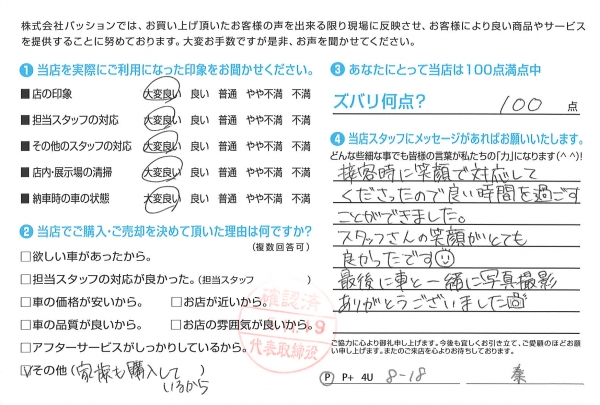 株式会社パッションでは、お買い上げ頂いたお客様の声を出来る限り現場に反映させ、お客様により良い商品やサービス
を提供することに努めております。大変お手数ですが是非、お声を聞かせてください。
① 当店を実際にご利用になった印象をお聞かせください。
■店の印象 大変良い 良い 普通 やや不満 不満
■担当スタッフの対応 大変良い 良い 普通 やや不満 不満
■その他のスタッフの対応 大変良い 良い 普通 やや不満 不満
■店内・展示場の清掃 大変良い 良い 普通 やや不満 不満
■納車時の車の状態 大変良い 良い 普通 やや不満 不満
② 当店でご購入・ご売却を決めて頂いた理由は何ですか?
(複数回答可)
□欲しい車があったから。
□担当スタッフの対応が良かった。(担当スタッフ
□車の価格が安いから。 □お店が近いから。
□車の品質が良いから。 □お店の雰囲気が良いから。
□アフターサービスがしっかりしているから。
☑その他 (家族も購入して
いるから
確認済
代表取締役
③ あなたにとって当店は100点満点中
ズバリ何点? 100 点
④ 当店スタッフにメッセージがあればお願いいたします。
どんな些細な事でも皆様の言葉が私たちの「力」になります(^ ^)!
接客時に笑顔で対応して
くださったので良い時間を過ごす
ことができました。
スタッフさんの笑顔がとても
良かったです☺
最後に車と一緒に写真撮影
ありがとうございました
ご協力に心より御礼申し上げます。今後も宜しくお引き立て、ご愛顧のほどお願
い申し上げます。またのご来店を心よりお待ちしております。
Ⓟ P+ 4U 8-18 秦